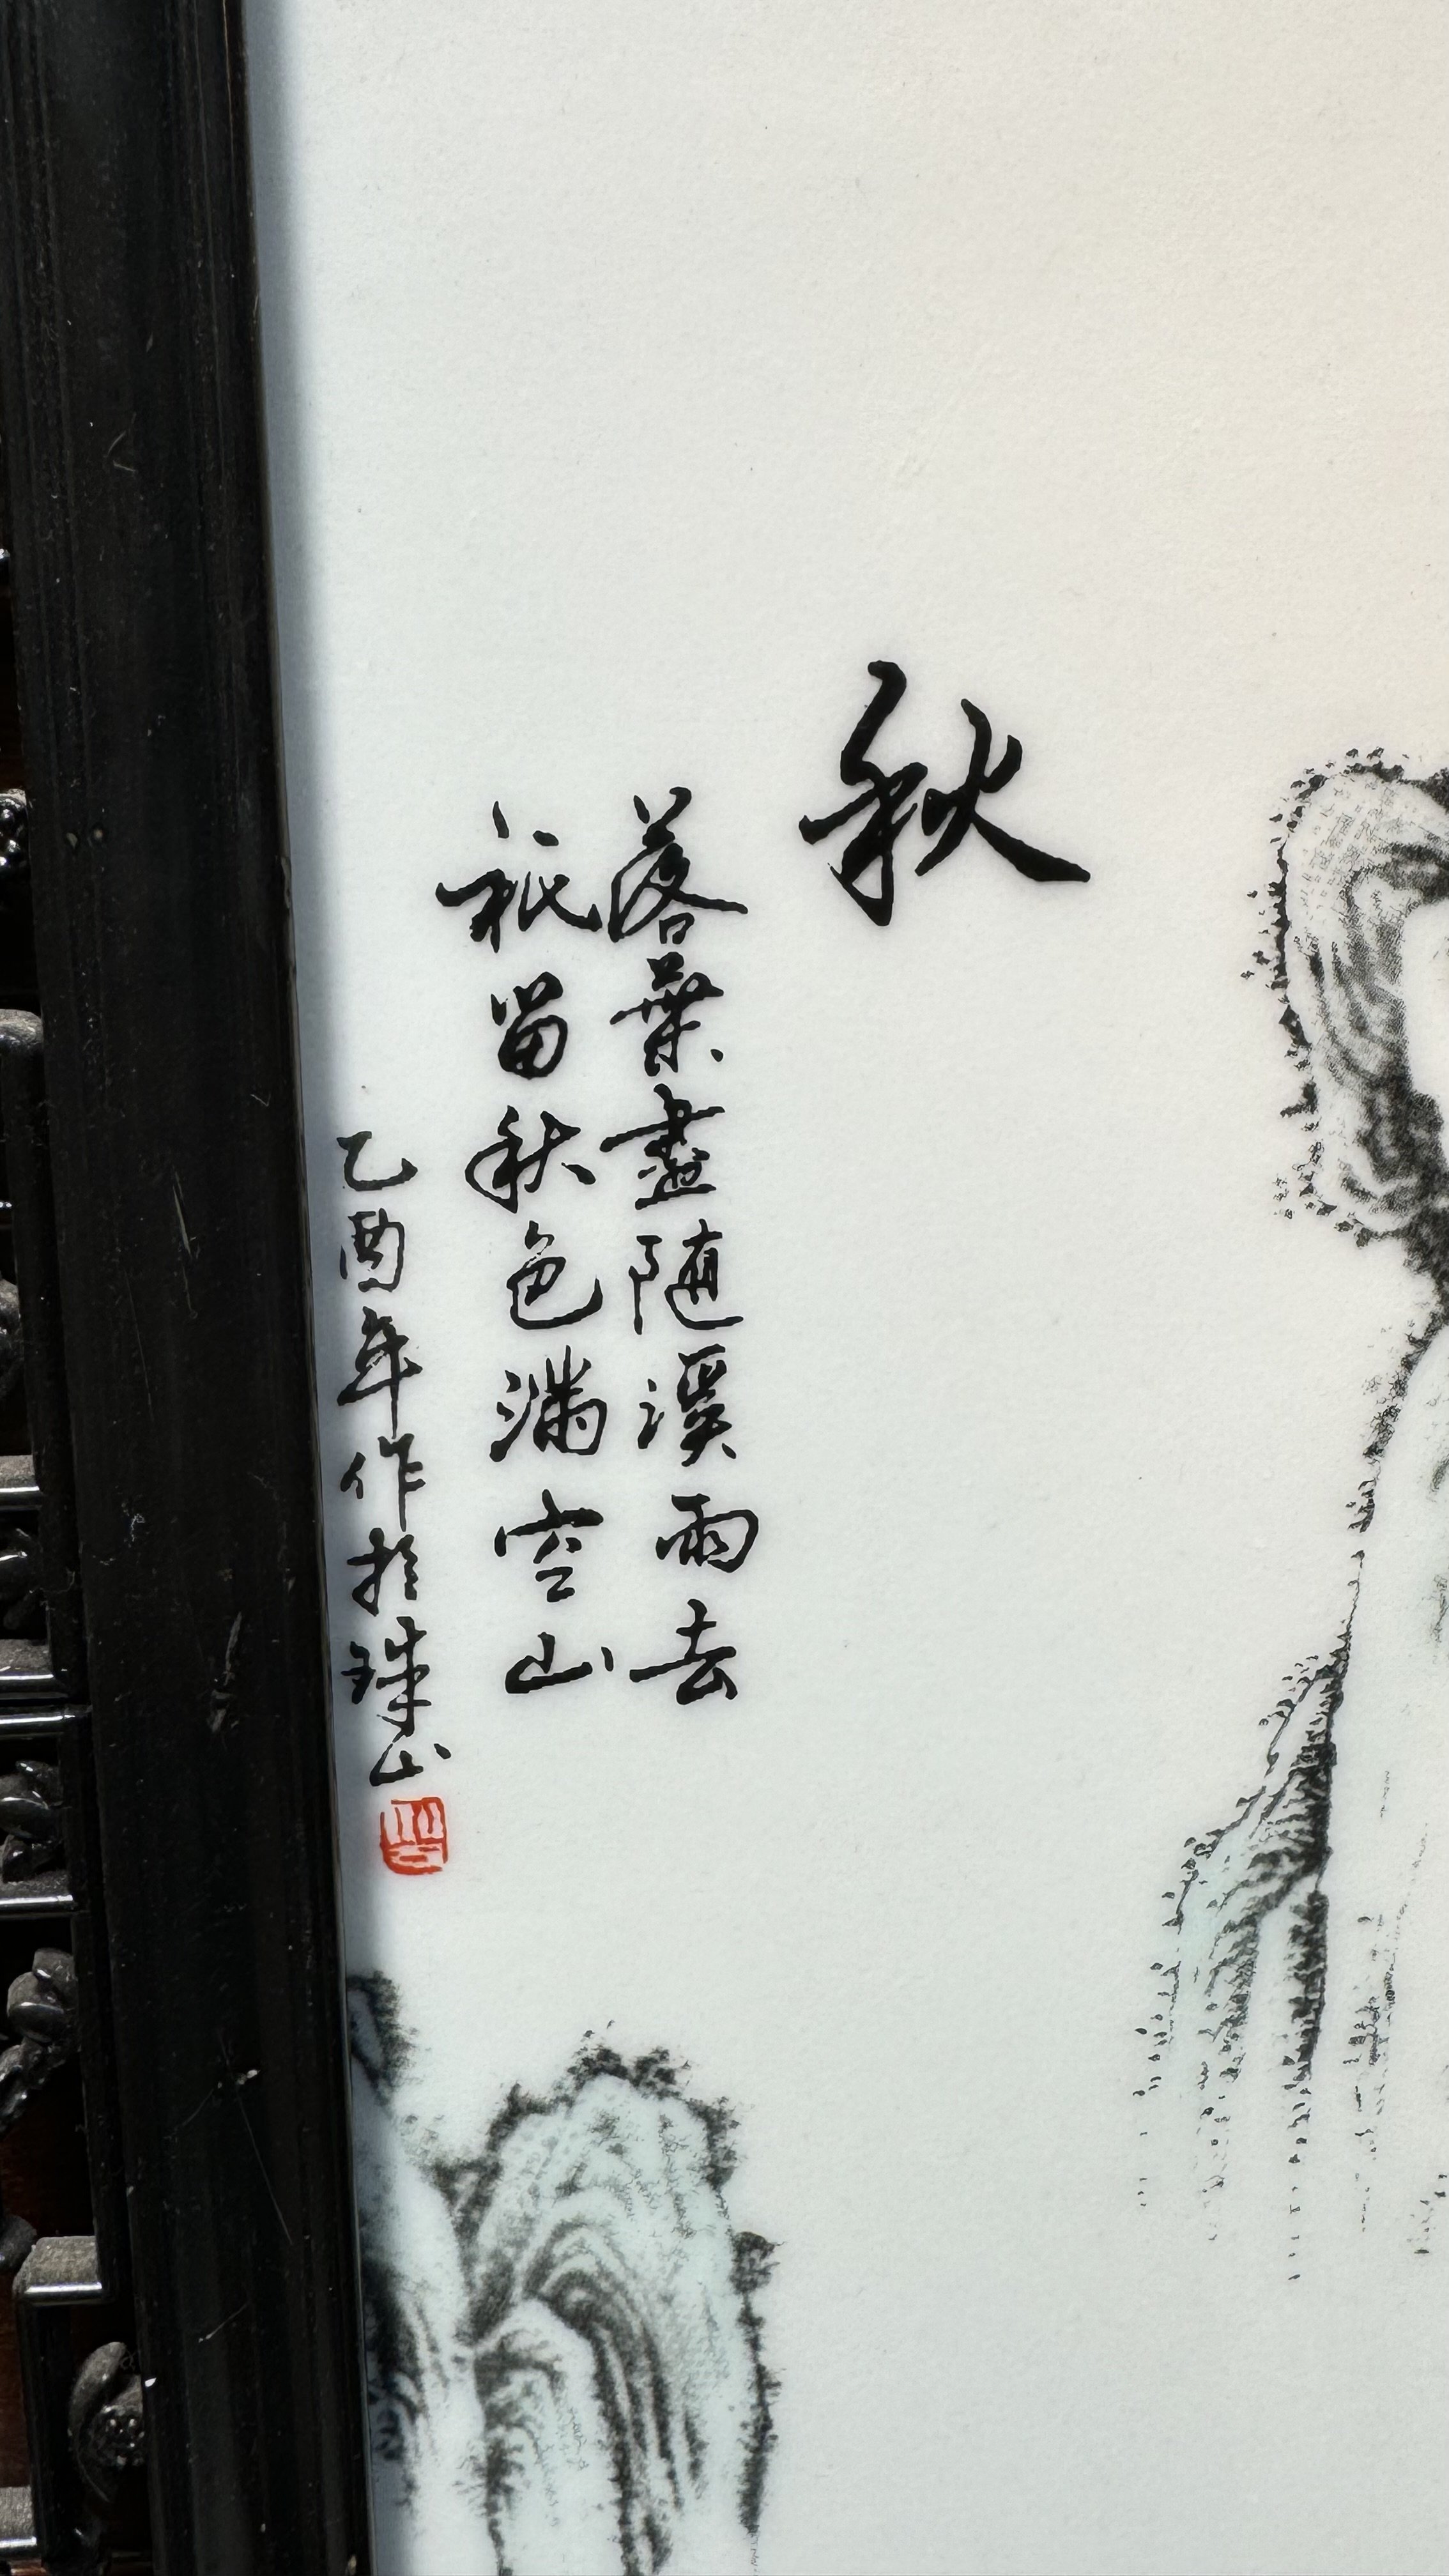 秋
落葉盡随溪雨去
祇留秋色滿空山
乙酉年作於珠山